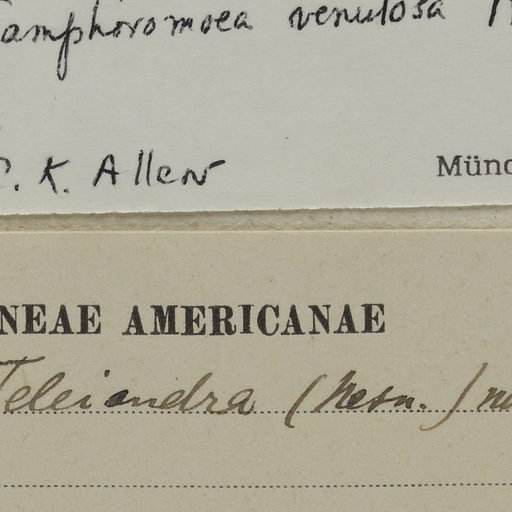 Camphoromoea venulosa
C. K. Allen
Münc
NEAE AMERICANAE
Teleiandra (Mesn.)